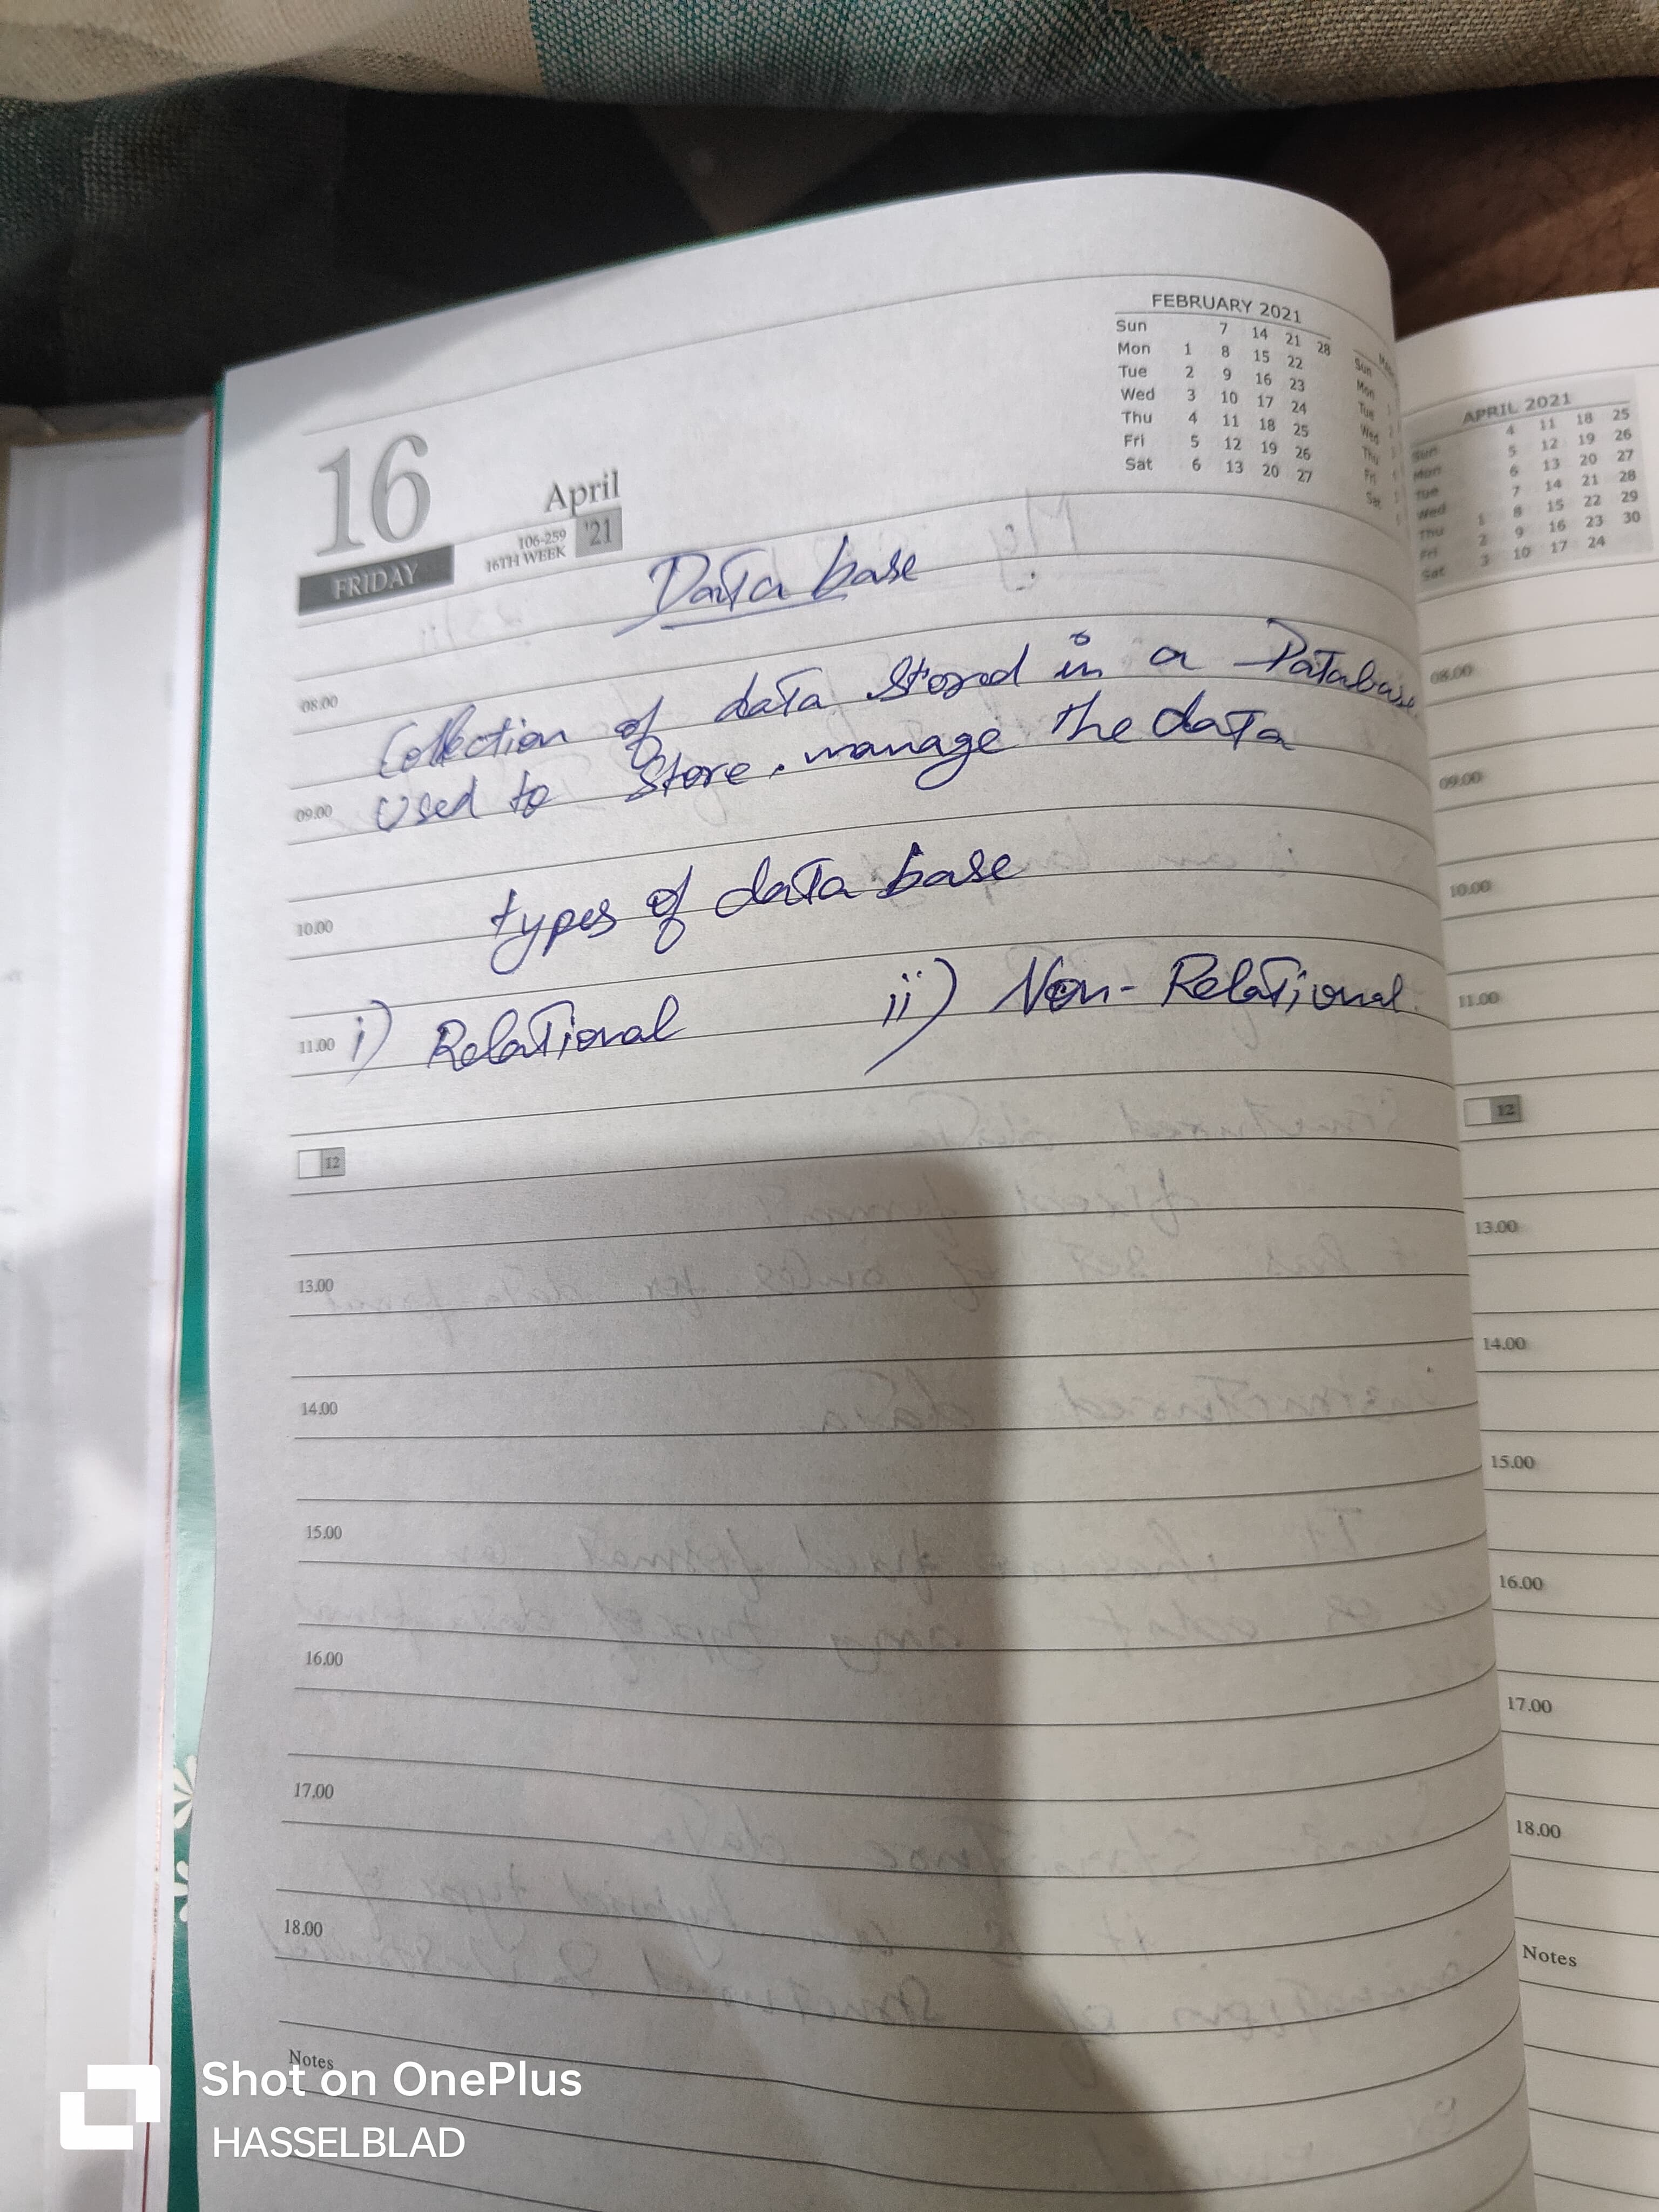 FEBRUARY 2021
Sun 7 14 21 28
Mon 1 8 15 22
Tue 2 9 16 23
Wed 3 10 17 24
Thu 4 11 18 25
Fri 5 12 19 26
Sat 6 13 20 27
16
April
106-259
16TH WEEK
'21
FRIDAY
Data base
08.00
Collection of data stored in a Database
09.00 Used to Store. manage the data
10.00 types of data base
11.00 i) Relational ii) Non-Relational
12
13.00
14.00
15.00
16.00
17.00
18.00
Notes
APRIL 2021
Sun 4 11 18 25
Mon 5 12 19 26
Tue 6 13 20 27
Wed 7 14 21 28
Thu 1 8 15 22 29
Fri 2 9 16 23 30
Sat 3 10 17 24
08.00
09.00
10.00
11.00
12
13.00
14.00
15.00
16.00
17.00
18.00
Notes
Shot on OnePlus
HASSELBLAD